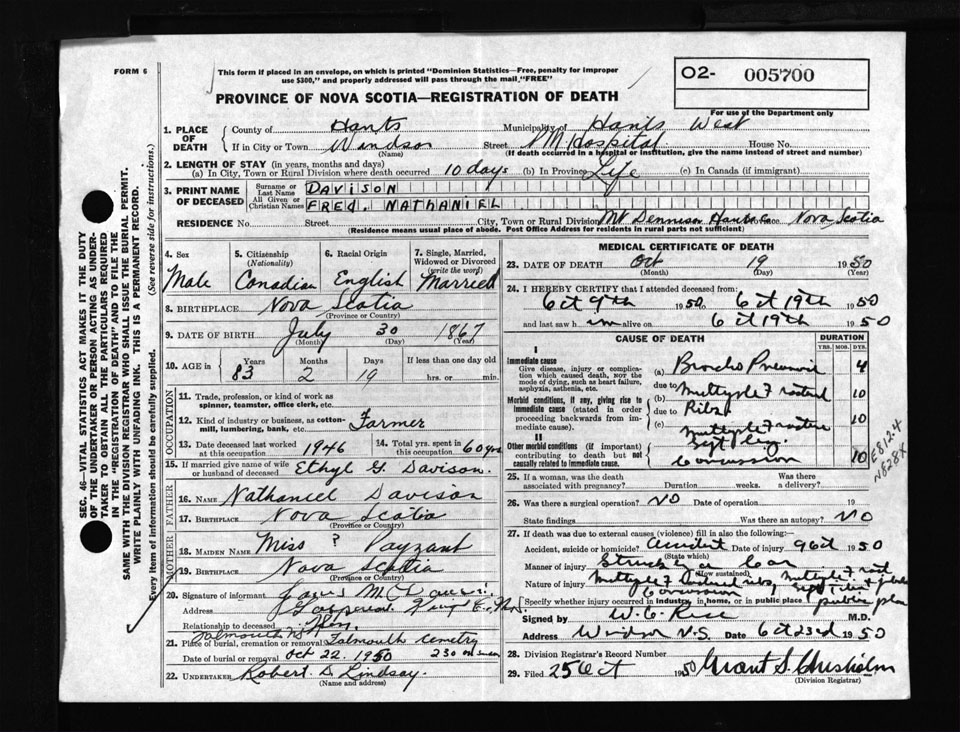 FORM 6
This form if placed in an envelope, on which is printed "Dominion Statistics—Free, penalty for improper
use $300," and properly addressed will pass through the mail, "FREE"
PROVINCE OF NOVA SCOTIA—REGISTRATION OF DEATH
O2- 005700
For use of the Department only
1. PLACE OF DEATH
County of Hants Municipality of Hants West
If in City or Town Windsor Street Hospital House No.
(Name) (If death occurred in a hospital or institution, give the name instead of street and number)
2. LENGTH OF STAY (in years, months and days)
(a) In City, Town or Rural Division where death occurred 10 days (b) In Province Life (c) In Canada (if immigrant)
3. PRINT NAME OF DECEASED
Surname or Last Name DAVISON
All Given or Christian Names FRED. NATHANIEL
RESIDENCE No. Street City, Town or Rural Division Mt Dennison Hants Co Province Nova Scotia
(Residence means usual place of abode. Post Office Address for residents in rural parts not sufficient)
4. Sex Male
5. Citizenship (Nationality) Canadian
6. Racial Origin English
7. Single, Married, Widowed or Divorced (write the word) Married
8. BIRTHPLACE Nova Scotia
(Province or Country)
9. DATE OF BIRTH July 30 1867
(Month) (Day) (Year)
10. AGE in Years 83 Months 2 Days 19 If less than one day old hrs. or min.
OCCUPATION
11. Trade, profession, or kind of work as spinner, teamster, office clerk, etc.
12. Kind of industry or business, as cotton-mill, lumbering, bank, etc. Farmer
13. Date deceased last worked at this occupation 1946
14. Total yrs. spent in this occupation 60 yrs
15. If married give name of wife or husband of deceased Ethyl G. Davison.
FATHER
16. Name Nathaniel Davison
17. Birthplace Nova Scotia
(Province or Country)
MOTHER
18. MAIDEN NAME Miss ? Payzant
19. BIRTHPLACE Nova Scotia
(Province or Country)
20. Signature of informant
Address
Relationship to deceased
Falmouth N.S.
21. Place of burial, cremation or removal Falmouth Cemetry
Date of burial or removal Oct 22. 1950 230
22. UNDERTAKER Robert D. Lindsay.
(Name and address)
MEDICAL CERTIFICATE OF DEATH
23. DATE OF DEATH Oct 19 1950
(Month) (Day) (Year)
24. I HEREBY CERTIFY that I attended deceased from:
Oct 9th 1950, Oct 19th 1950
and last saw him alive on Oct 19th 1950
CAUSE OF DEATH
DURATION
YRS. MOS. DYS.
I
Immediate cause
Give disease, injury or complication which caused death, not the mode of dying, such as heart failure, asphyxia, asthenia, etc.
(a) Broncho Pneumonia 4
due to
Morbid conditions, if any, giving rise to immediate cause (stated in order proceeding backwards from immediate cause).
(b) Multiple Fractured 10
due to Ribs
(c) Multiple Fracture 10
II
Other morbid conditions (if important) contributing to death but not causally related to immediate cause.
Concussion 10
E8124
N828X
25. If a woman, was the death associated with pregnancy? Duration weeks. Was there a delivery?
26. Was there a surgical operation? NO Date of operation 19
State findings Was there an autopsy? NO
27. If death was due to external causes (violence) fill in also the following:—
Accident, suicide or homicide? Accident Date of injury 9 Oct 1950
(State which)
Manner of injury Struck by Car
(How sustained)
Nature of injury Multiple Fractured ribs, Multiple Fract
Concussion
Specify whether injury occurred in industry, in home, or in public place public place
Signed by M.D.
Address Windsor N.S. Date Oct 23rd 1950
28. Division Registrar's Record Number
29. Filed 25 Oct 1950 Grant S. Chisholm
(Division Registrar)
SEC. 46—VITAL STATISTICS ACT MAKES IT THE DUTY
OF THE UNDERTAKER OR PERSON ACTING AS UNDER-
TAKER TO OBTAIN ALL THE PARTICULARS REQUIRED
IN THE "REGISTRATION OF DEATH" AND TO FILE THE
SAME WITH THE DIVISION REGISTRAR WHO SHALL ISSUE THE BURIAL PERMIT.
WRITE PLAINLY WITH UNFADING INK. THIS IS A PERMANENT RECORD.
Every item of information should be carefully supplied. (See reverse side for instructions.)